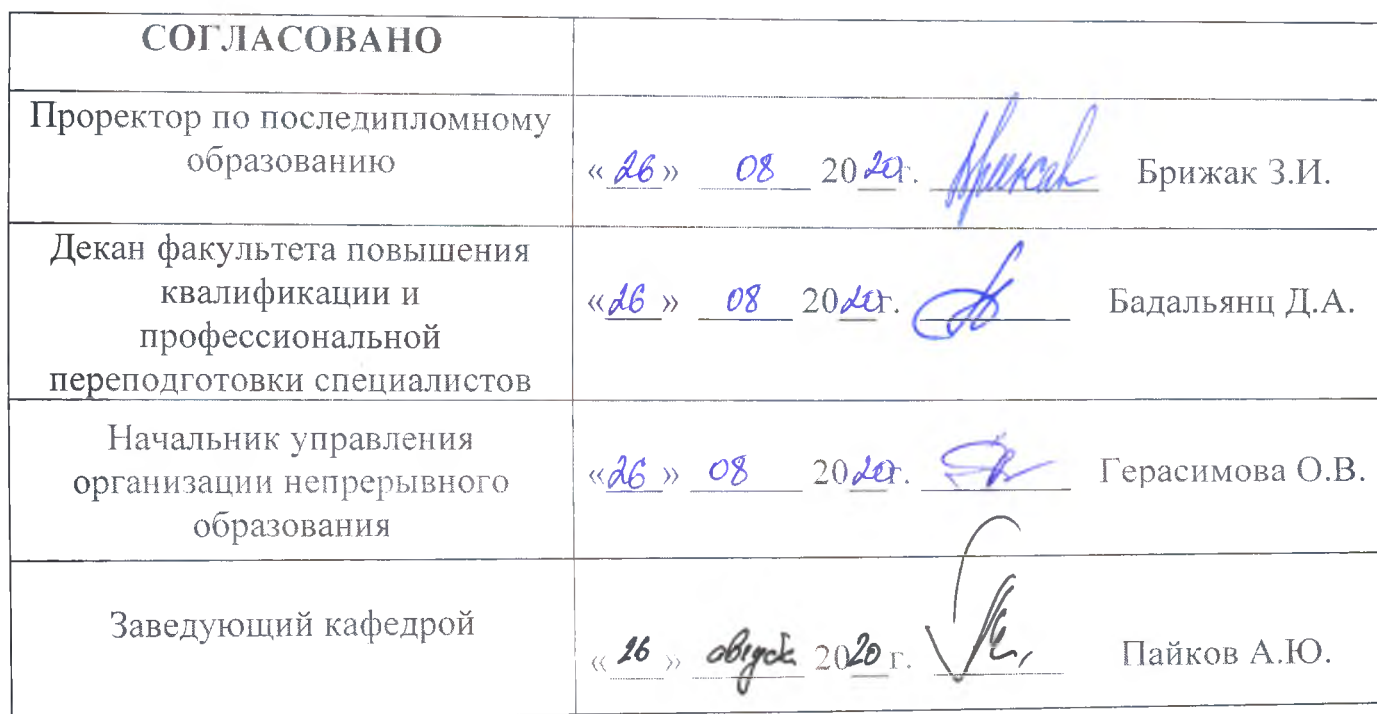 СОГЛАСОВАНО
Проректор по последипломному
образованию
«26» 08 2020г. Брижак З.И.
Декан факультета повышения
квалификации и
профессиональной
переподготовки специалистов
«26» 08 2020г. Бадальянц Д.А.
Начальник управления
организации непрерывного
образования
«26» 08 2020г. Герасимова О.В.
Заведующий кафедрой
«26» августа 2020 г. Пайков А.Ю.